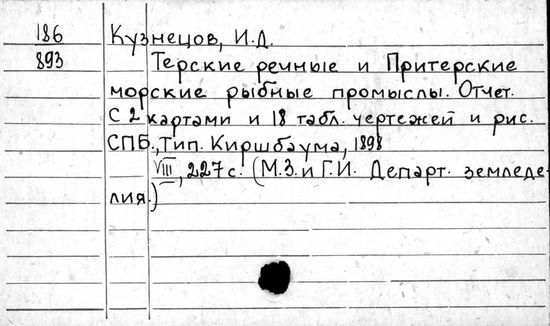 186 Кузнецов, И.Д.
893 Терские речные и Притерские
морские рыбные промыслы. Отчет.
С 2 картами и 18 табл. чертежей и рис.
СПБ., Тип. Киршбаума, 1898
VIII, 227 с. (М.З. и Г.И. Департ. земледе-
лия.)